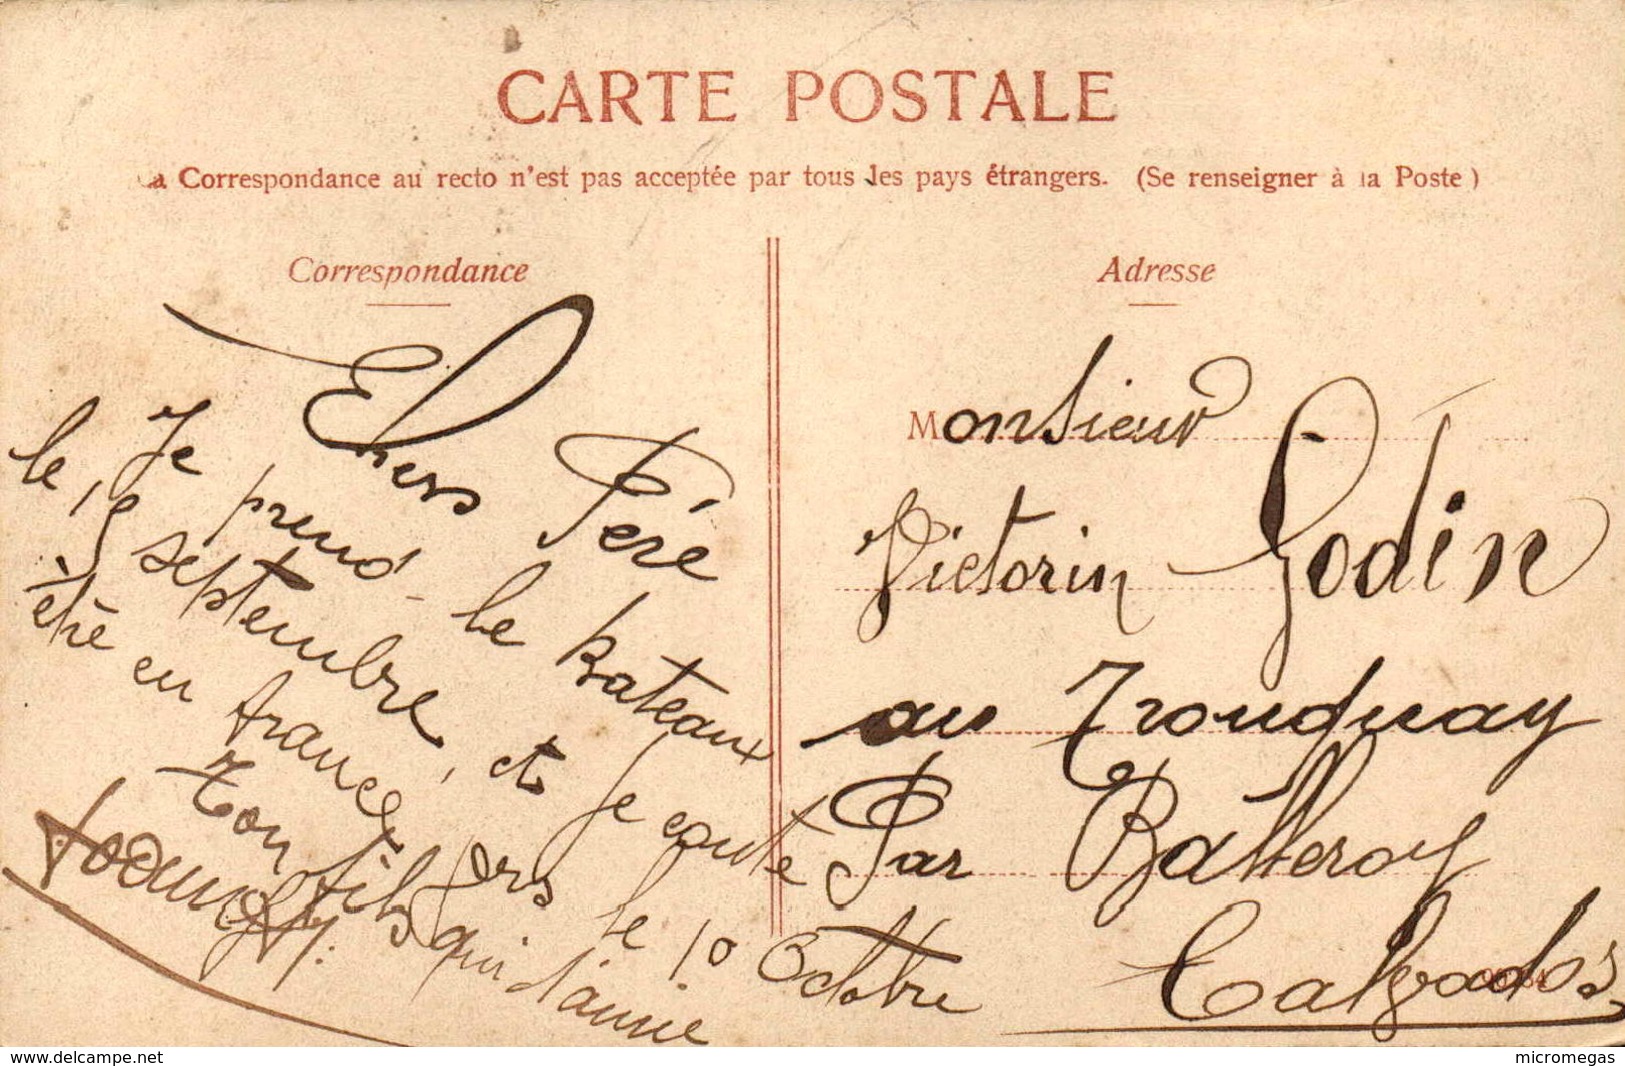 CARTE POSTALE
La Correspondance au recto n'est pas acceptée par tous les pays étrangers. (Se renseigner à la Poste)
Correspondance
Chers Père
Je prend le bateaux
le 18 septembre, et je conte
être en france vers le 10 Octobre
Ton fils qui t'aime
Adresse
Monsieur
Victorin Godin
au Tronquay
Par Balleroy
Calvados
www.delcampe.net
micromegas